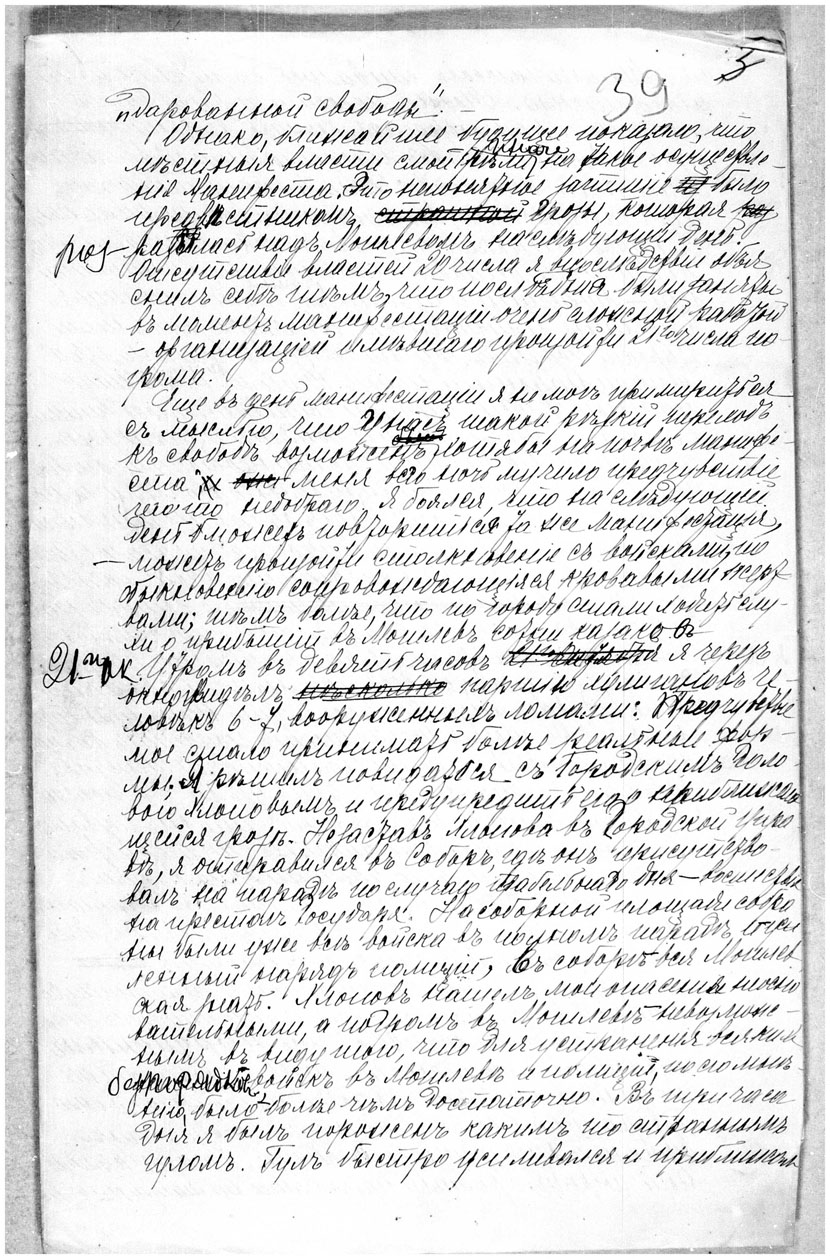 39
„дарованной свободы“. —
Однако, ближайшее будущее показало, что
мѣстныя власти смотрѣли иначе на такое осуществле-
ніе Манифеста. Это непонятное затишье было
предвѣстникомъ странный грозы, которая раз
разразилась надъ Могилевомъ на слѣдующій день.
Отсутствіе властей 20 числа я впослѣдствіи объя
снилъ себѣ тѣмъ, что послѣднія были заняты
въ моментъ манифестаціи очень сложной работой
– организаціей имѣвшаго произойти 21го числа по-
грома.
Еще въ день манифестаціи я не могъ примириться
съ мыслью, что у насъ такой рѣзкій переходъ
къ свободѣ возможенъ, хотя бы на почвѣ манифе-
ста, меня всю ночь мучило предчувствіе
чего то недобраго. Я боялся, что на слѣдующій
день можетъ повториться та же манифестація,
– можетъ произойти столкновеніе съ войсками, по
обыкновенію сопровождающіяся кровавыми жерт
вами; тѣмъ болѣе, что по городу стали ходить слу-
хи о прибытіи въ Могилевъ сотни казаковъ
21го ок. Утромъ въ девять часовъ я черезъ
окно увидѣлъ нѣсколько партію хулигановъ че-
ловѣкъ 6-7, вооруженныхъ ломами. Предчувствіе
мое стало принимать болѣе реальные фор-
мы. Я рѣшилъ повидаться съ Городскимъ Голо-
вою Хлоповымъ и предупредить его о приближаю
щейся грозѣ. Не заставъ Хлопова въ Городской Упра
вѣ, я отправился въ Соборъ, гдѣ онъ присутство-
валъ на парадѣ по случаю табельнаго дня – восшествія
на престолъ Государя. На соборной площади собра
ны были уже всѣ войска въ полномъ парадѣ и уси
ленный нарядъ полиціи, въ соборѣ вся Могилев
ская знать. Хлоповъ нашелъ мои опасенія неосно
вательными, а погромъ въ Могилевѣ невозмож-
нымъ въ виду того, что для устраненія всякихъ
безпорядковъ войскъ въ Могилевѣ и полиціи, по его мнѣ-
нію, было болѣе чѣмъ достаточно. Въ три часа
дня я былъ пораженъ какимъ то страннымъ
гуломъ. Гулъ быстро усиливался и приближал